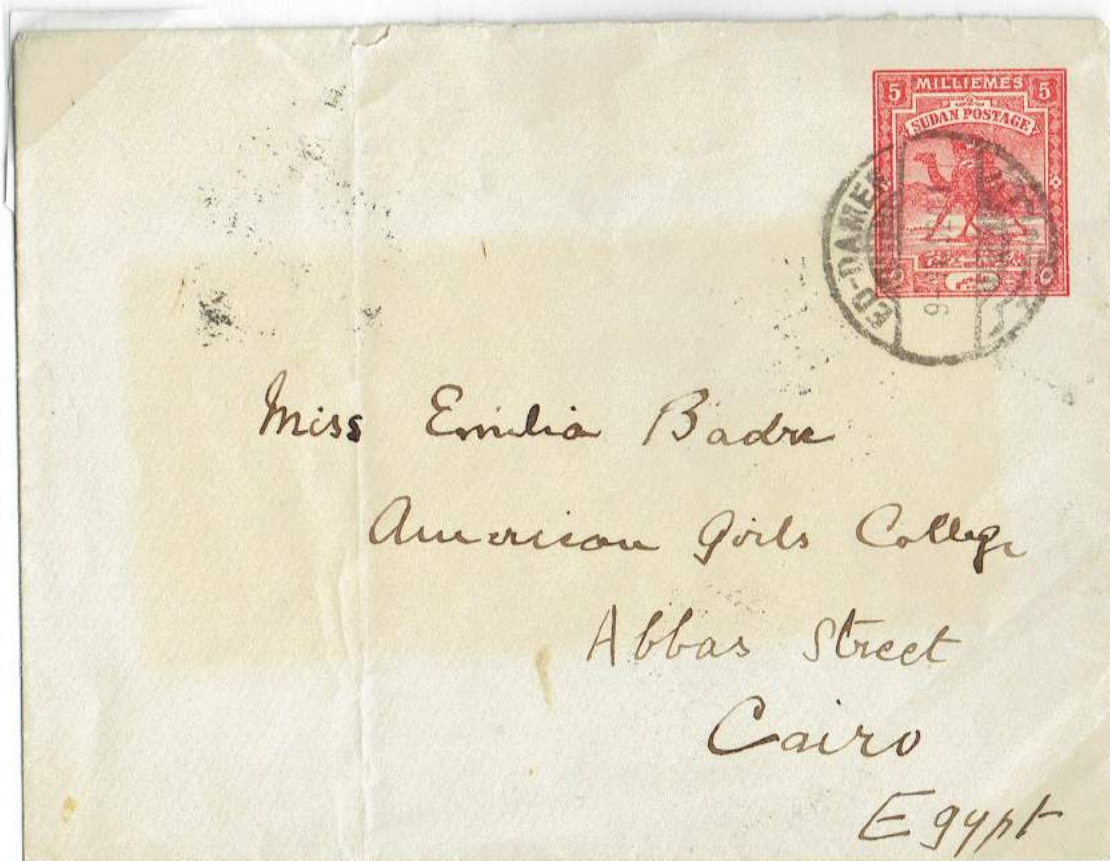 5 MILLIEMES 5
SUDAN POSTAGE
ED-DAMER
Miss Emilia Badre
American Girls College
Abbas Street
Cairo
Egypt